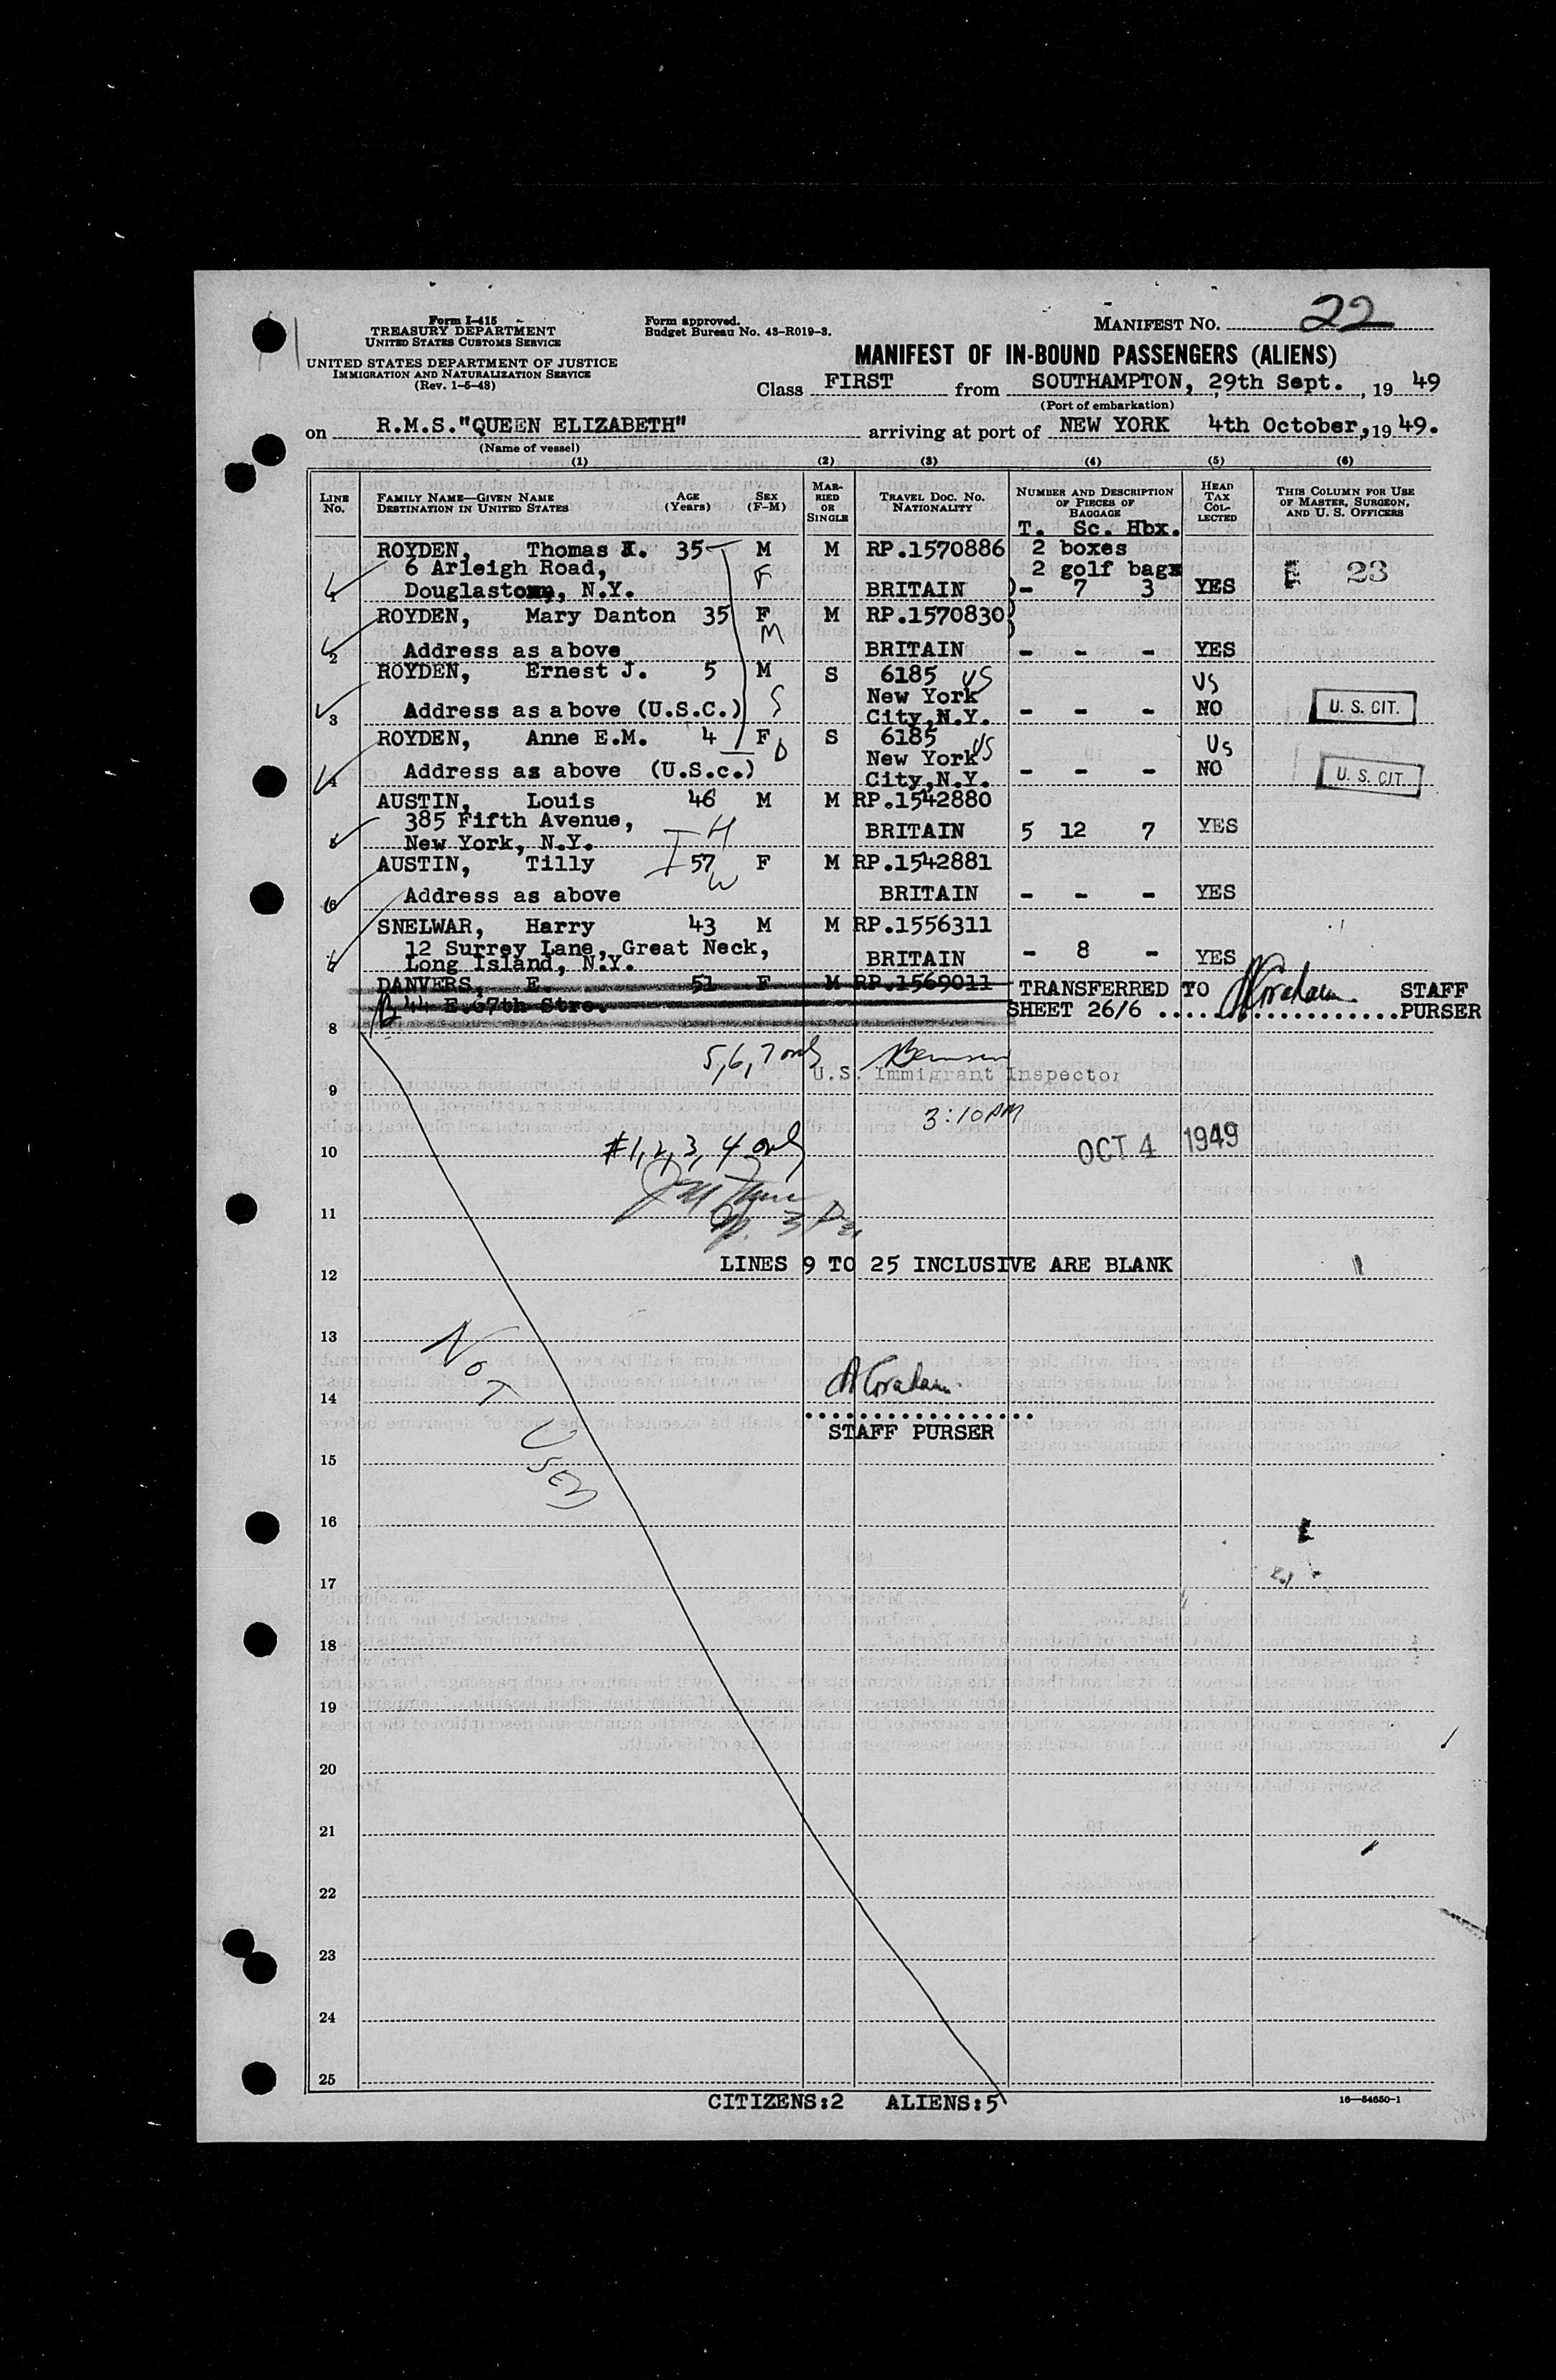 Form I-415
TREASURY DEPARTMENT
UNITED STATES CUSTOMS SERVICE
UNITED STATES DEPARTMENT OF JUSTICE
IMMIGRATION AND NATURALIZATION SERVICE
(Rev. 1-5-48)
Form approved.
Budget Bureau No. 43-R019-3.
MANIFEST NO. 22
MANIFEST OF IN-BOUND PASSENGERS (ALIENS)
Class FIRST from SOUTHAMPTON, 29th Sept., 19 49
(Port of embarkation)
on R.M.S."QUEEN ELIZABETH" arriving at port of NEW YORK 4th October, 19 49.
(Name of vessel)
(1) (2) (3) (4) (5) (6)
LINE NO. FAMILY NAME—GIVEN NAME DESTINATION IN UNITED STATES AGE (Years) SEX (F-M) MARRIED OR SINGLE TRAVEL DOC. NO. NATIONALITY NUMBER AND DESCRIPTION OF PIECES OF BAGGAGE HEAD TAX COLLECTED THIS COLUMN FOR USE OF MASTER, SURGEON, AND U. S. OFFICERS
T. Sc. Hbx.
ROYDEN, Thomas I. 35 M M RP.1570886 2 boxes
6 Arleigh Road, F 2 golf bags
1 Douglastown, N.Y. BRITAIN )- 7 3 YES 23
ROYDEN, Mary Danton 35 F M RP.1570830)
M )
2 Address as above BRITAIN - - - YES
ROYDEN, Ernest J. 5 M S 6185 US US
New York
3 Address as above (U.S.C.) S City,N.Y. - - - NO U. S. CIT.
ROYDEN, Anne E.M. 4 F D S 6185 US US
New York
4 Address as above (U.S.c.) City,N.Y. - - - NO U. S. CIT.
AUSTIN, Louis 46 M M RP.1542880
385 Fifth Avenue, H BRITAIN 5 12 7 YES
5 New York, N.Y.
AUSTIN, Tilly 57 F M RP.1542881
W
6 Address as above BRITAIN - - - YES
SNELWAR, Harry 43 M M RP.1556311
12 Surrey Lane, Great Neck,
7 Long Island, N.Y. BRITAIN - 8 - YES
DANVERS, E. 51 F M RP.1569011 TRANSFERRED TO A Graham STAFF
44 E.67th Stre. SHEET 26/6 .................PURSER
8
5,6,7 only
9 U.S. Immigrant Inspector
3:10 PM
10 #1,2,3,4 only OCT 4 1949
11
LINES 9 TO 25 INCLUSIVE ARE BLANK
12
13
NOT USED
14 A Graham
STAFF PURSER
15
16
17
18
19
20
21
22
23
24
25
CITIZENS:2 ALIENS:5
16—54650-1